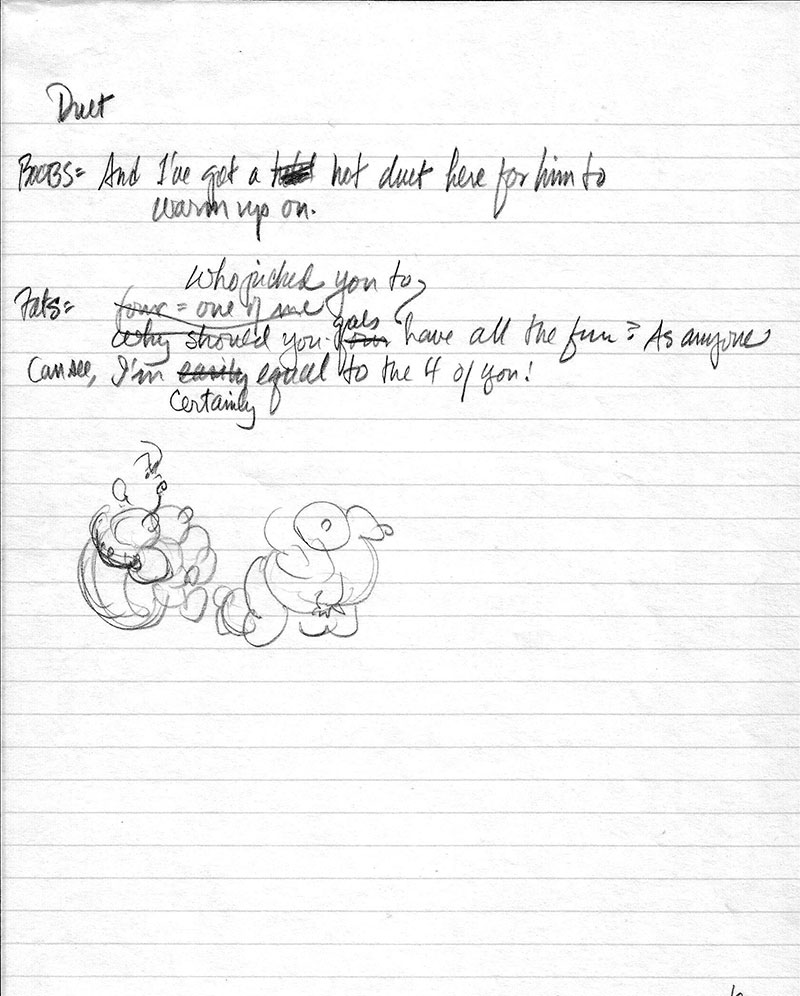 Duet
BOOBS= And I've got a hot duet here for him to
warm up on.
Who picked you to
Fats= four = one of me
gals
why should you four have all the fun? As anyone
can see, I'm easily equal to the 4 of you!
Certainly